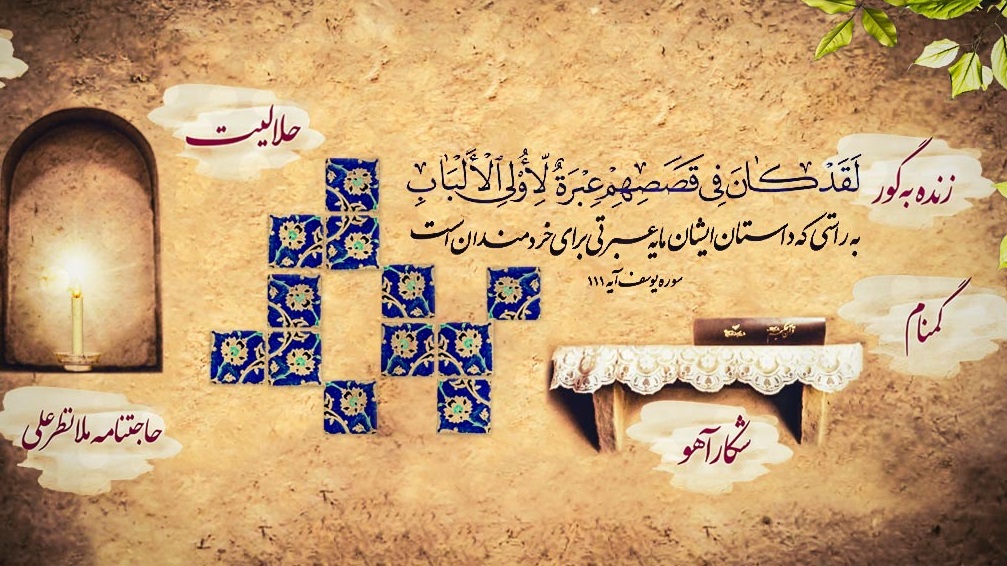 حلالیت
لَقَدْ كَانَ فِي قَصَصِهِمْ عِبْرَةٌ لِّأُوْلِي الْأَلْبَابِ
به راستی که داستان ایشان مایه عبرتی برای خردمندان است
سوره یوسف آیه ۱۱۱
زنده به گور
گمنام
شکار آهو
حاجتنامه ملا نظر علی